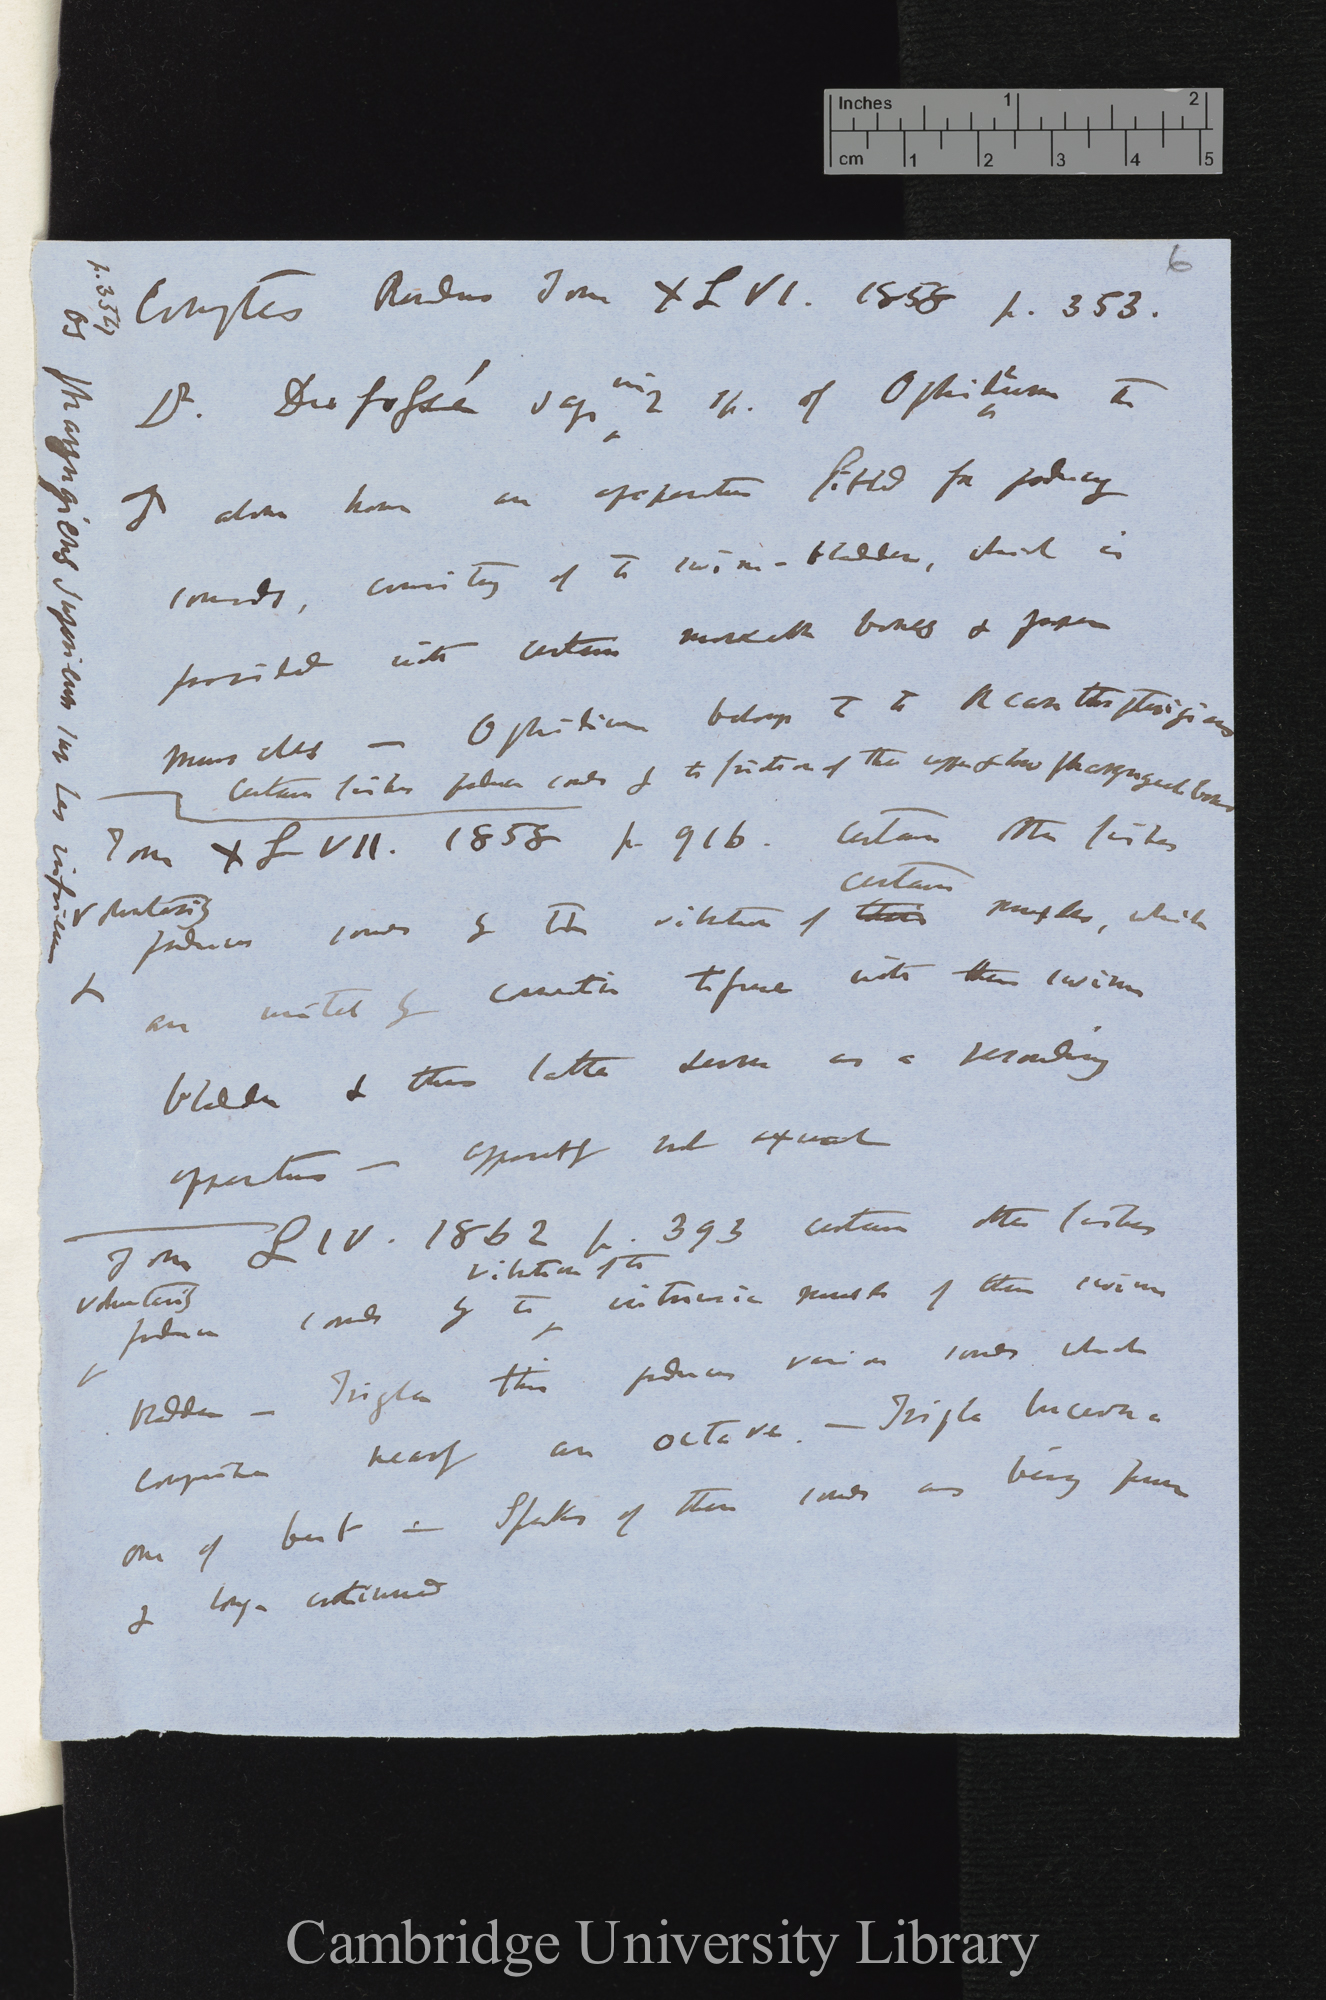 Inches 1 2
cm 1 2 3 4 5
6
Comptes Rendus Tom XLVI. 1858 p. 353.
Dr. Dufossé says in 2 sp. of Ophidium the
♂ alone have an apparatus fitted for producing
sounds, consisting of the swim-bladder, which is
provided with certain moveable bones & proper
muscles — Ophidium belongs to the Acanthopterygians
Certain fishes produce sounds by the friction of the upper & lower pharyngeal bones
Tom XLVII. 1858 p 916. Certain other fishes
voluntarily certain
produces sounds by the vibration of this muscles, which
are united by connective tissue with the swim
bladder & this latter serves as a resounding
apparatus — apparently not sexual
Tom LIV. 1862 p. 393 certain other fishes
voluntarily vibration of the
produce sounds by the intrinsic muscles of their swim
bladder — Trigla this produces various sounds which
comprise nearly an octave. — Trigla lucerna
one of best — Speaks of these sounds as being pure
& long-continued
p. 354
os pharyngiens superieurs sur les inférieurs